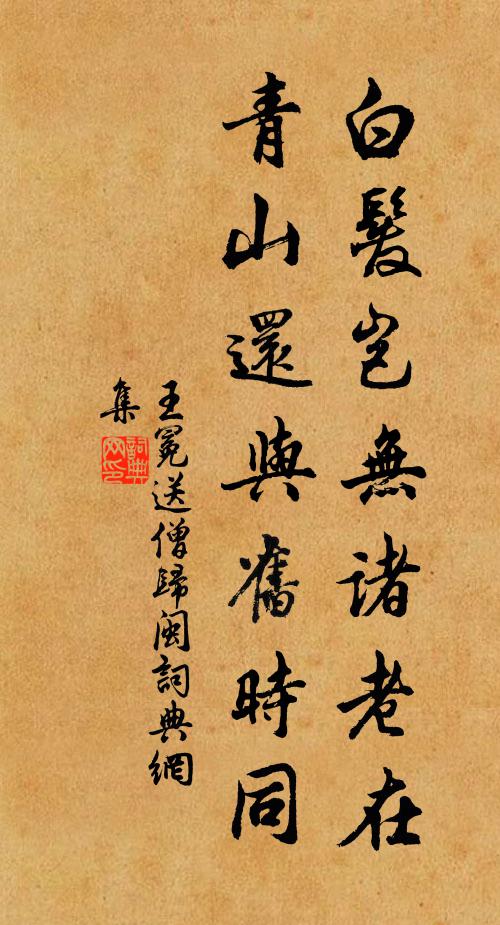 白髮豈無諸老在
青山還與舊時同
王冕送僧歸閩詞典網
集
詞典網印